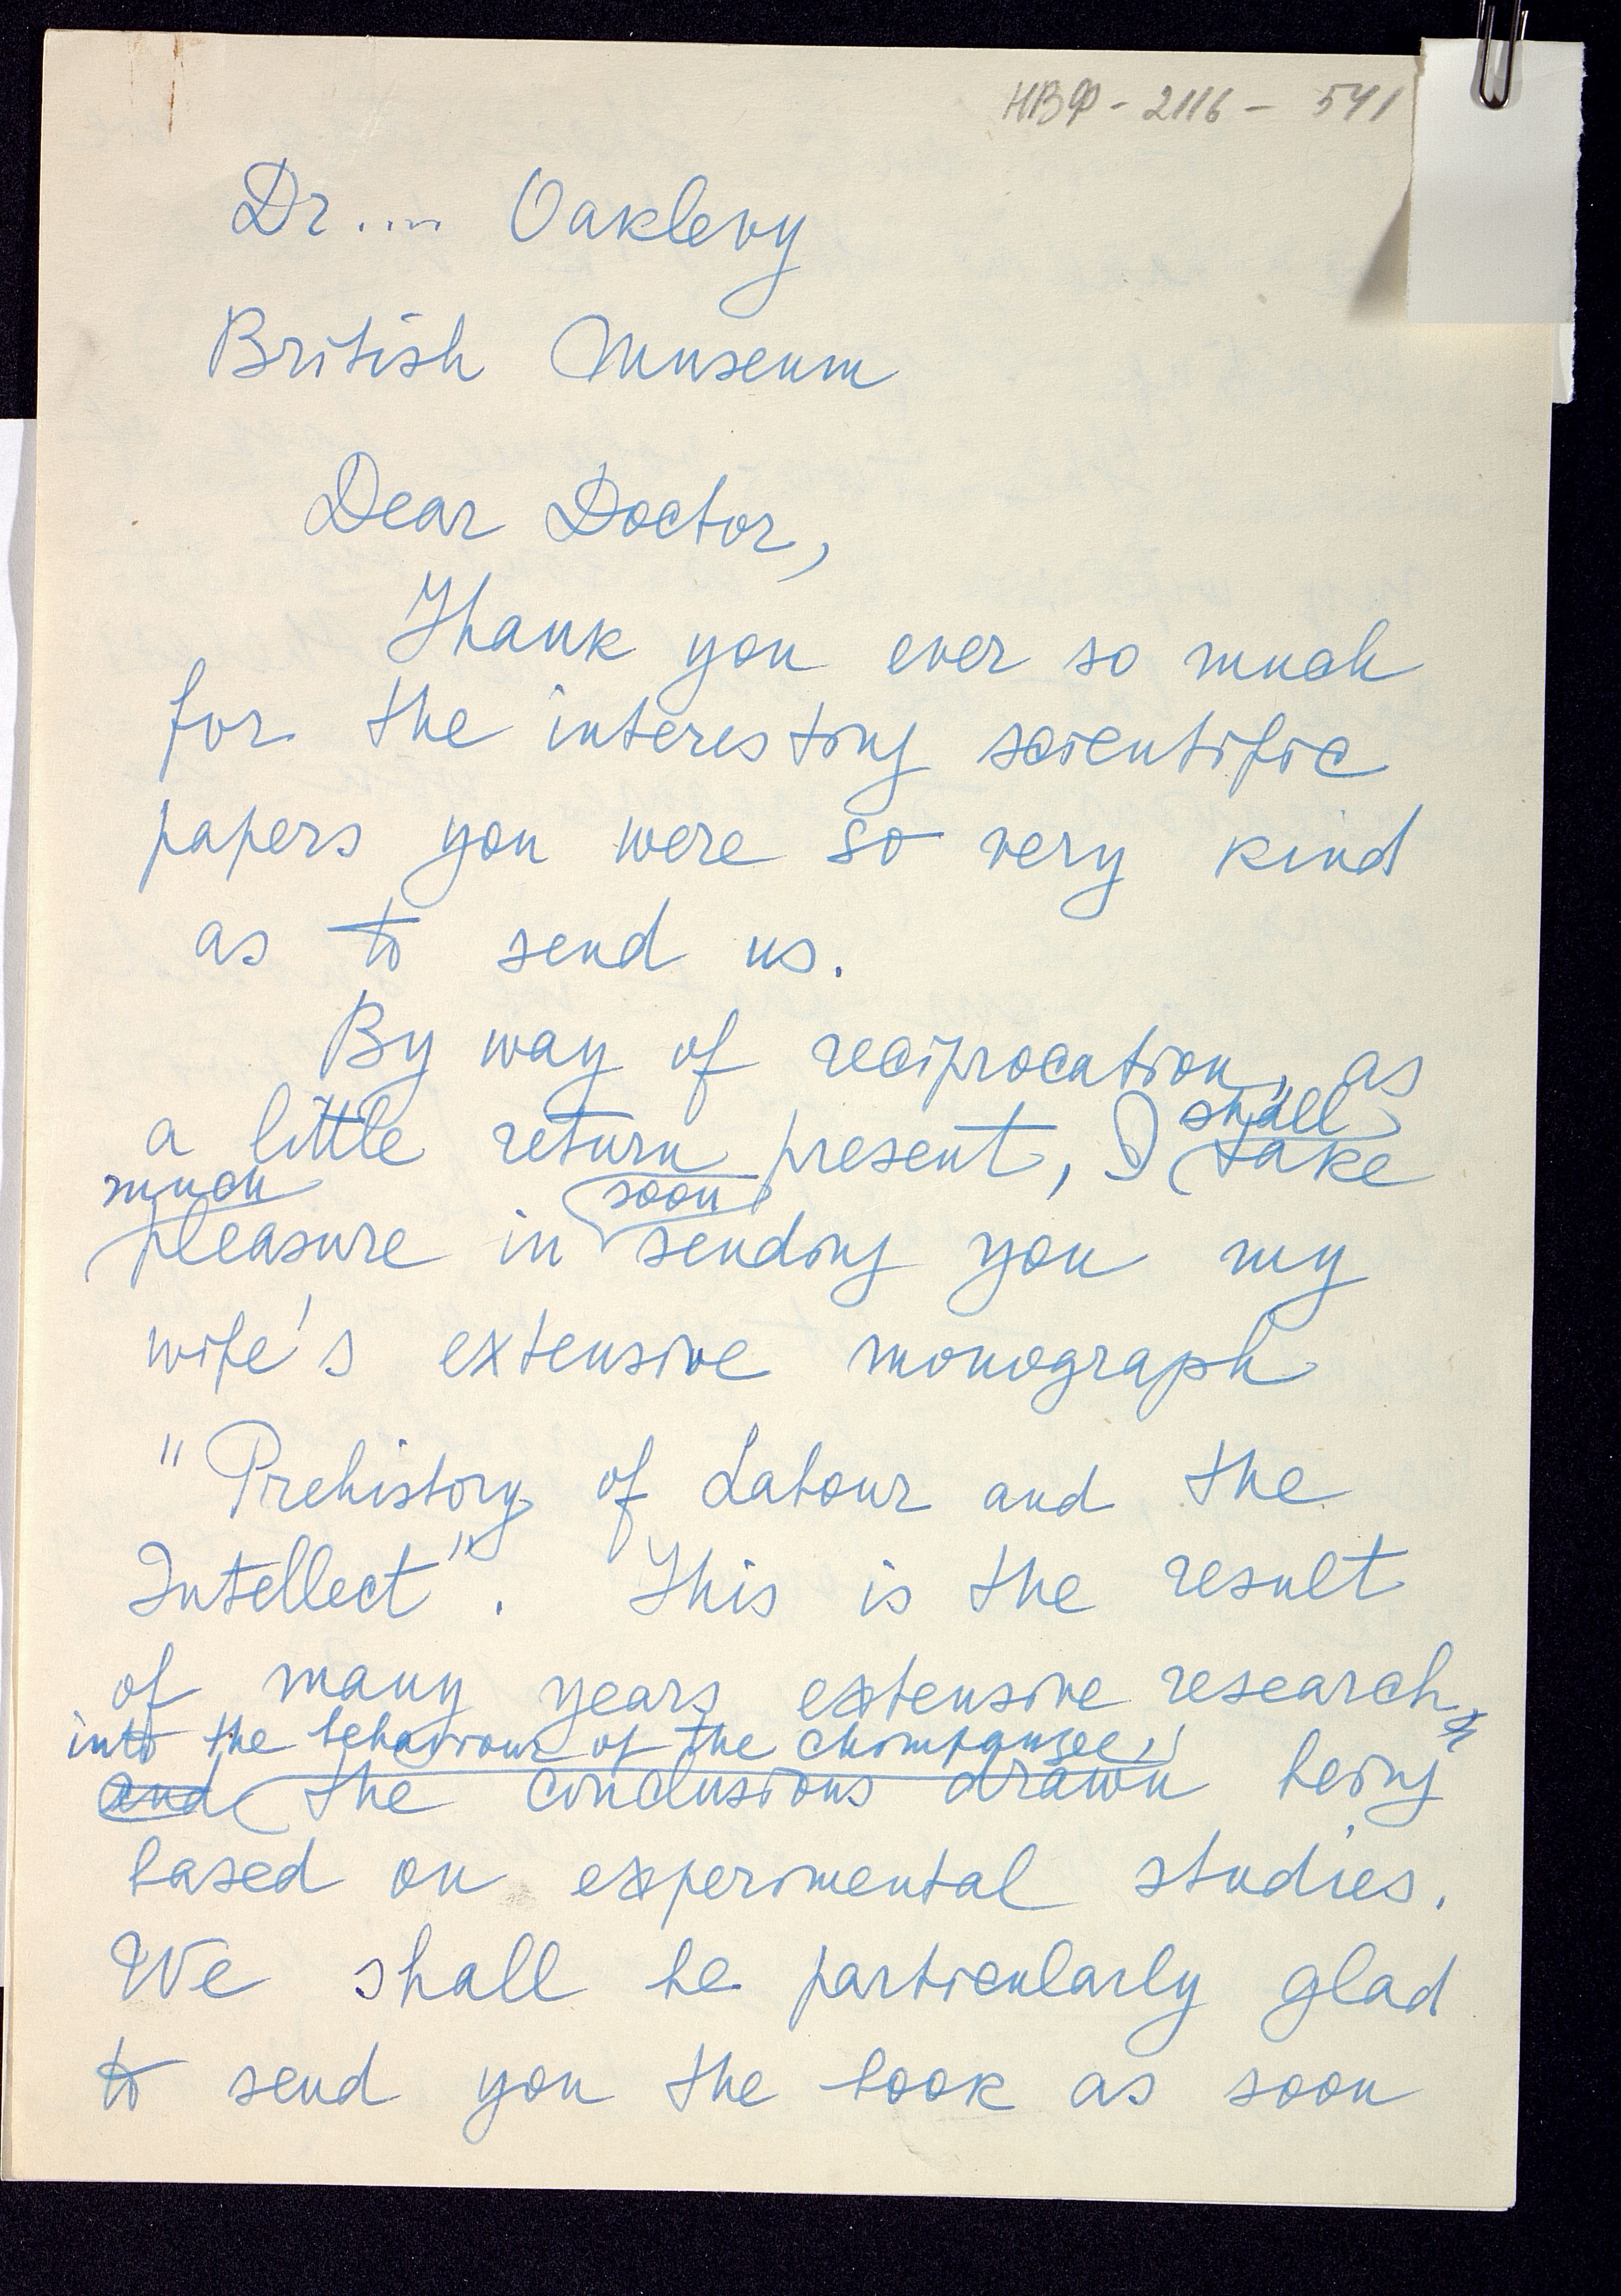 НВФ - 2116 - 541
Dr .... Oaklevy
British Museum
Dear Doctor,
Thank you ever so much
for the interesting scientific
papers you were so very kind
as to send us.
By way of reciprocation, as
a little return present, I shall take
much pleasure in soon sending you my
wife's extensive monograph
"Prehistory of Labour and the
Intellect". This is the result
of many years extensive research,
into the behaviour of the chimpanzee,
and the conclusions drawn being
based on experimental studies.
We shall be particularly glad
to send you the book as soon